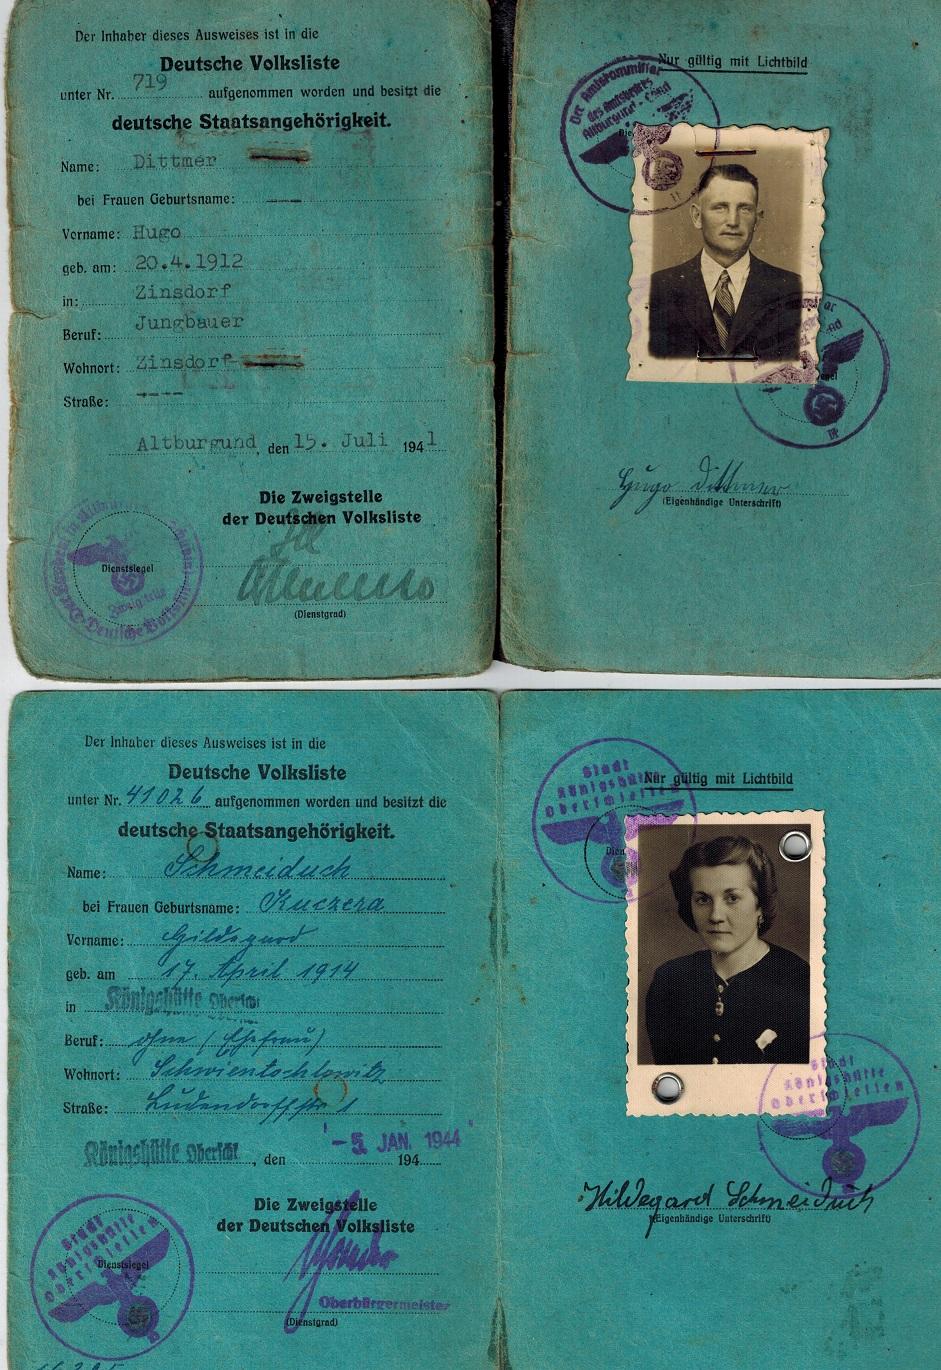 Der Inhaber dieses Ausweises ist in die
Deutsche Volksliste
unter Nr. 719 aufgenommen worden und besitzt die
deutsche Staatsangehörigkeit.
Name: Dittmer
bei Frauen Geburtsname: ---
Vorname: Hugo
geb. am: 20.4.1912
in: Zinsdorf
Beruf: Jungbauer
Wohnort: Zinsdorf
Straße: ----
Altburgund, den 15. Juli 1941
Die Zweigstelle
der Deutschen Volksliste
Dienstsiegel
Zweigstelle
Deutsche Volksliste
(Dienstgrad)
Nur gültig mit Lichtbild
Der Amtskommissar
des Amtsbezirks
Altburgund
Hugo Dittmer
(Eigenhändige Unterschrift)
Der Inhaber dieses Ausweises ist in die
Deutsche Volksliste
unter Nr. 41026 aufgenommen worden und besitzt die
deutsche Staatsangehörigkeit.
Name: Schmeiduch
bei Frauen Geburtsname: Kuczera
Vorname: Hildegard
geb. am 17. April 1914
in Königshütte Oberschl.
Beruf: ohne (Ehefrau)
Wohnort: Schwientochlowitz
Straße: Ludendorffstr 1
Königshütte Oberschl., den -5. JAN. 1944 194
Die Zweigstelle
der Deutschen Volksliste
Stadt
Königshütte
Oberschlesien
Dienstsiegel
Oberbürgermeister
(Dienstgrad)
Nur gültig mit Lichtbild
Stadt
Königshütte
Oberschlesien
Stadt
Königshütte
Oberschlesien
Hildegard Schmeiduch
(Eigenhändige Unterschrift)